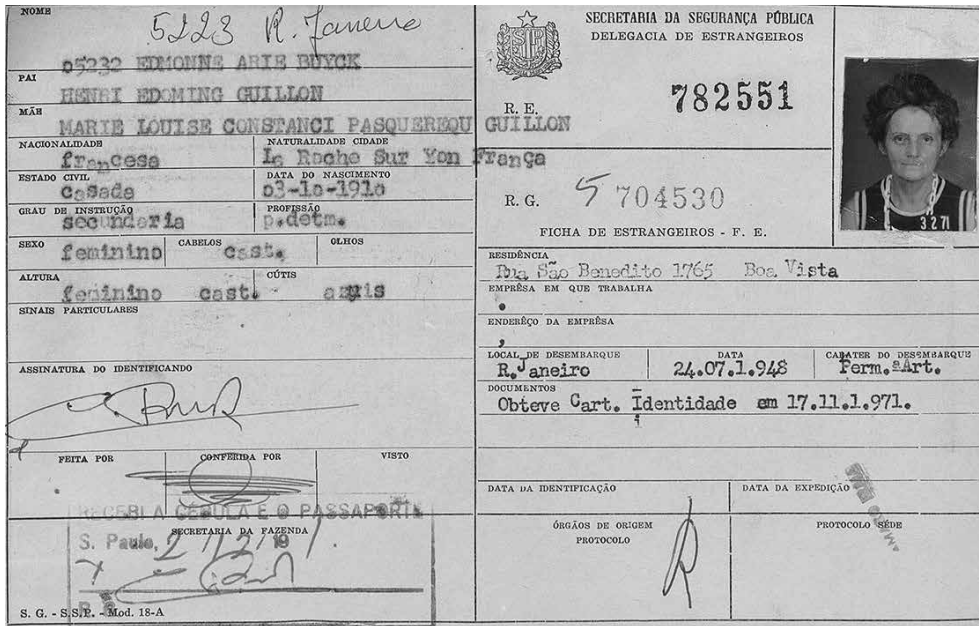 NOME
5223 R. Janeiro
o5232 EDMONNE ARIE BUYCK
PAI
HENRI EDOMING GUILLON
MÃE
MARIE LOUISE CONSTANCI PASQUEREQU GUILLON
NACIONALIDADE
francesa
NATURALIDADE CIDADE
La Roche Sur Yon França
ESTADO CIVIL
Casada
DATA DO NASCIMENTO
o3-1o-191o
GRAU DE INSTRUÇÃO
secundaria
PROFISSÃO
p.detm.
SEXO
feminino
CABELOS
cast.
OLHOS
ALTURA
feminino cast.
CÚTIS
azuis
SINAIS PARTICULARES
ASSINATURA DO IDENTIFICANDO
FEITA POR
CONFERIDA POR
VISTO
RECEBI A CEDULA E O PASSAPORTE
SECRETARIA DA FAZENDA
S. Paulo, 2/12/19
S. G. - S.S.P. - Mod. 18-A
SECRETARIA DA SEGURANÇA PÚBLICA
DELEGACIA DE ESTRANGEIROS
R. E. 782551
R. G. 5 704530
FICHA DE ESTRANGEIROS - F. E.
3 2 71
RESIDÊNCIA
Rua São Benedito 1765 Boa Vista
EMPRÊSA EM QUE TRABALHA
ENDERÊÇO DA EMPRÊSA
LOCAL DE DESEMBARQUE
R.Janeiro
DATA
24.07.1.948
CARATER DO DESEMBARQUE
Perm.ªArt.
DOCUMENTOS
Obteve Cart. Identidade em 17.11.1.971.
DATA DA IDENTIFICAÇÃO
DATA DA EXPEDIÇÃO
ÓRGÃOS DE ORIGEM
PROTOCOLO
PROTOCOLO SÉDE